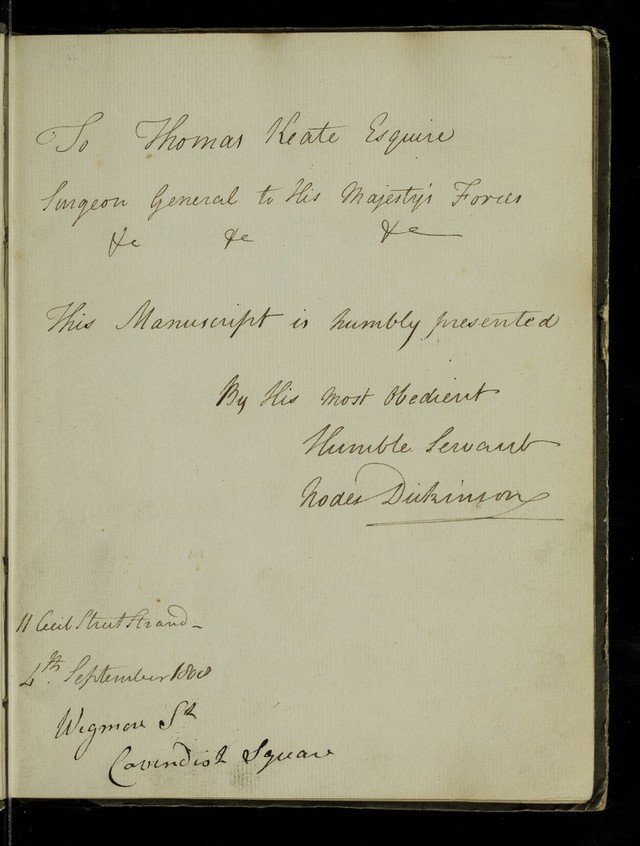 To Thomas Keate Esquire
Surgeon General to His Majesty's Forces
&c &c &c
This Manuscript is humbly presented
By His most Obedient
Humble Servant
Nodes Dickinson
11 Cecil Street Strand -
4th September 1808
Wigmore St
Cavendish Square